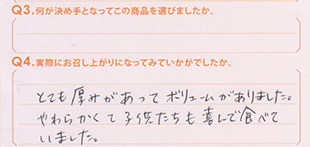 Q3.何が決め手となってこの商品を選びましたか。
Q4.実際にお召し上がりになってみていかがでしたか。
とても厚みがあって ボリュームがありました。
やわらかくて 子供たちも 喜んで食べて
いました。